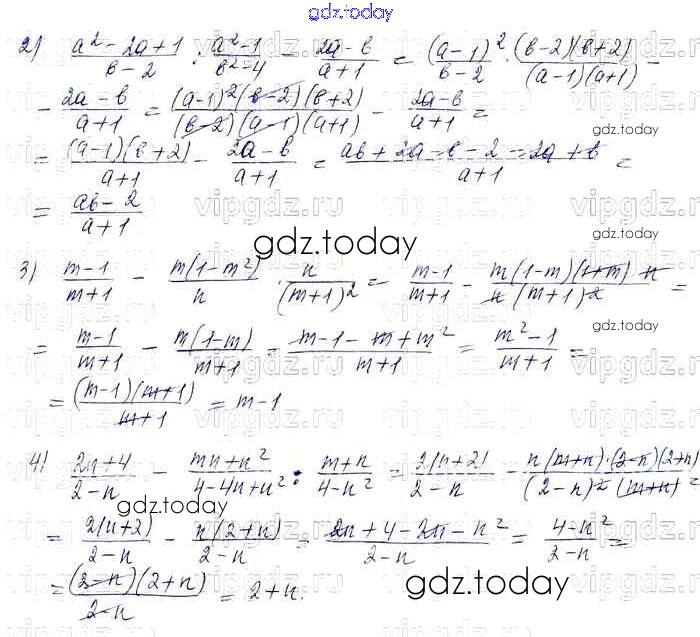 gdz.today
2) (a² - 2a + 1)/(в - 2) : (a² - 1)/(в² - 4) - (2a - в)/(a + 1) = (a - 1)²/(в - 2) · (в - 2)(в + 2)/((a - 1)(a + 1)) -
- (2a - в)/(a + 1) = (a - 1)²(в - 2)(в + 2)/((в - 2)(a - 1)(a + 1)) - (2a - в)/(a + 1) =
gdz.today
= (a - 1)(в + 2)/(a + 1) - (2a - в)/(a + 1) = (aв + 2a - в - 2 - 2a + в)/(a + 1) =
= (aв - 2)/(a + 1)
vipgdz.ru
gdz.today
3) (m - 1)/(m + 1) - m(1 - m²)/n · n/(m + 1)² = (m - 1)/(m + 1) - m(1 - m)(1 + m) n/(n (m + 1)²) =
gdz.today
= (m - 1)/(m + 1) - m(1 - m)/(m + 1) = (m - 1 - m + m²)/(m + 1) = (m² - 1)/(m + 1) =
= (m - 1)(m + 1)/(m + 1) = m - 1
vipgdz.ru
4) (2n + 4)/(2 - n) - (mn + n²)/(4 - 4n + n²) : (m + n)/(4 - n²) = 2(n + 2)/(2 - n) - n(m + n)·(2 - n)(2 + n)/((2 - n)²(m + n))
gdz.today
= 2(n + 2)/(2 - n) - n(2 + n)/(2 - n) = (2n + 4 - 2n - n²)/(2 - n) = (4 - n²)/(2 - n) =
= (2 - n)(2 + n)/(2 - n) = 2 + n.
gdz.today